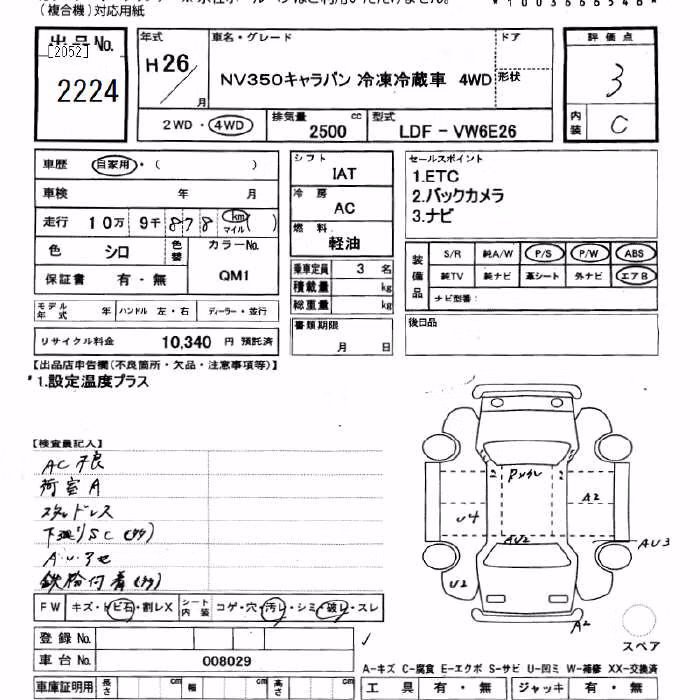 (複合機)対応用紙
出品No.
[2052]
2224
年式
H26/
月
車名・グレード
NV350キャラバン 冷凍冷蔵車 4WD
ドア
形状
評価点
3
内装
C
2WD・4WD
排気量
cc
2500
型式
LDF-VW6E26
車歴
自家用・( )
車検 年 月
走行 10万 9千 878 km マイル ( )
色 シロ
色替
カラーNo.
QM1
保証書 有・無
シフト
IAT
冷房
AC
燃料
軽油
乗車定員 3 名
積載量 kg
総重量 kg
書類期限
月 日
セールスポイント
1.ETC
2.バックカメラ
3.ナビ
装備品
S/R 純A/W P/S P/W ABS
純TV 純ナビ 革シート 外ナビ エアB
ナビ型番:
後日品
モデル年式 年 ハンドル 左・右 ディーラー・並行
リサイクル料金 10,340 円 預託済
【出品店申告欄(不良箇所・欠品・注意事項等)】
*1.設定温度プラス
【検査員記入】
AC不良
荷室A
スタッドレス
下廻りSC(サ)
A.U.多
鉄粉付着(サ)
Rメクレ
A2
U4
AU2
AU3
U2
A2
スペア
FW キズ・トビ石・割レX シート内装 コゲ・穴・汚レ・シミ・破レ・スレ
登録No.
車台No. 008029
A-キズ C-腐食 E-エクボ S-サビ U-凹ミ W-補修 XX-交換済
車庫証明用 長さ cm 幅 cm 高さ cm
工具 有・無 ジャッキ 有・無